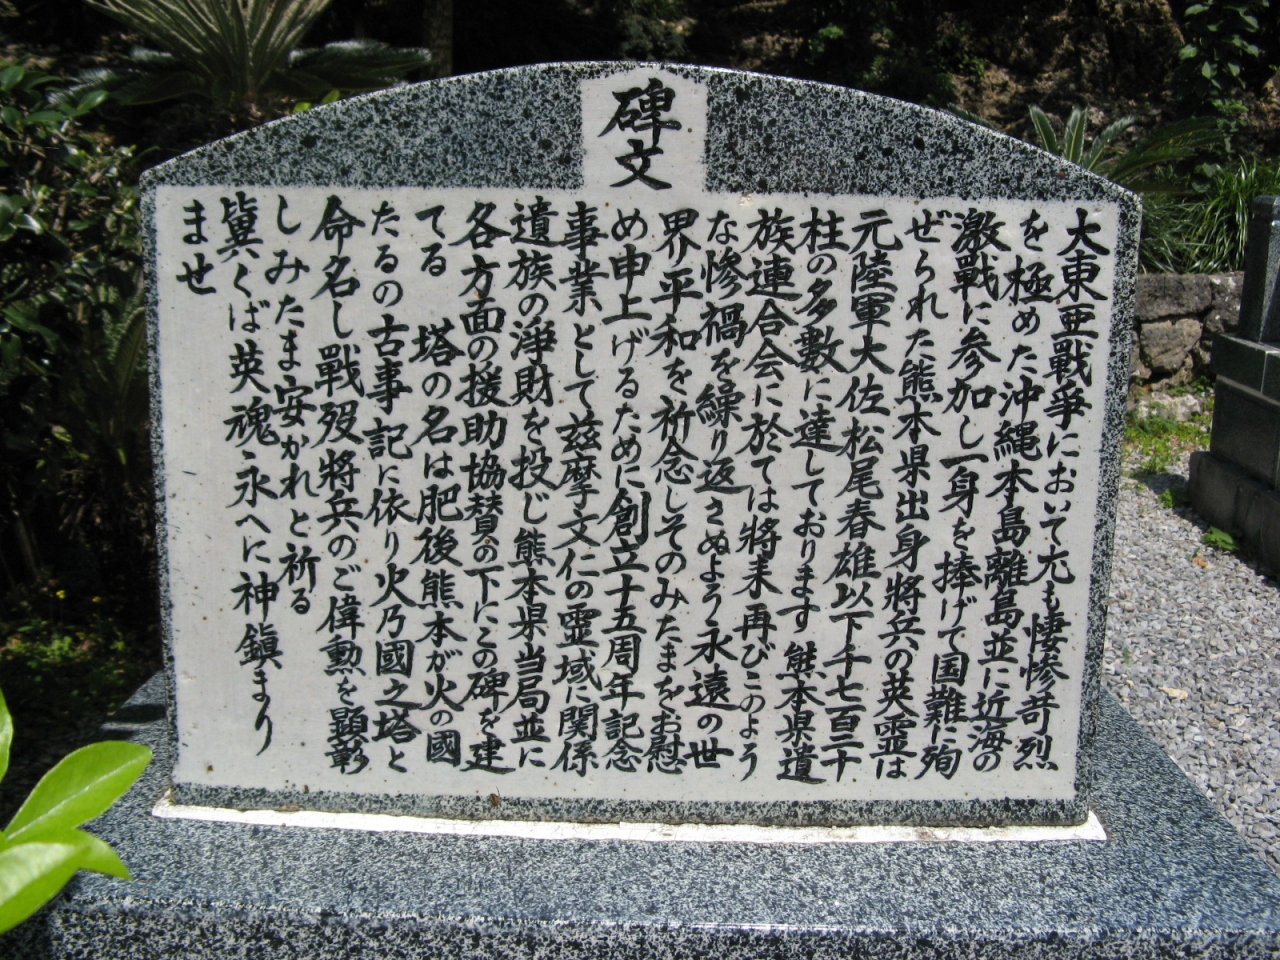 碑文
大東亜戦爭において尤も悽惨苛烈
を極めた沖縄本島離島並に近海の
激戰に参加し一身を捧げて国難に殉
ぜられた熊本県出身將兵の英霊は
元陸軍大佐松尾春雄以下千七百二十
柱の多數に達しております熊本県遺
族連合会に於ては將来再びこのよう
な惨禍を繰り返さぬよう永遠の世
界平和を祈念しそのみたまをお慰
め申上げるために創立十五周年記念
事業として茲摩文仁の霊域に関係
遺族の浄財を投じ熊本県当局並に
各方面の援助協賛の下にこの碑を建
てる 塔の名は肥後熊本が火の國
たるの古事記に依り火乃國之塔と
命名し戰歿將兵のご偉勳を顕彰
しみたま安かれと祈る
冀くば英魂永へに神鎭まり
ませ